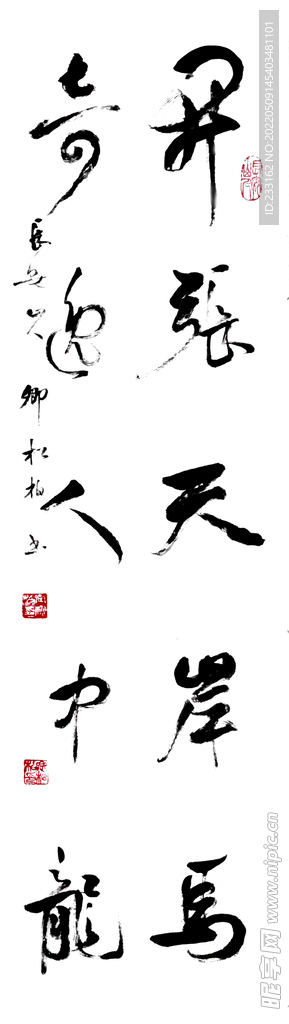 開張天岸馬
奇逸人中龍
長安 卿松柏书
ID:233162 NO:20220509145403481101
昵享网 www.nipic.cn